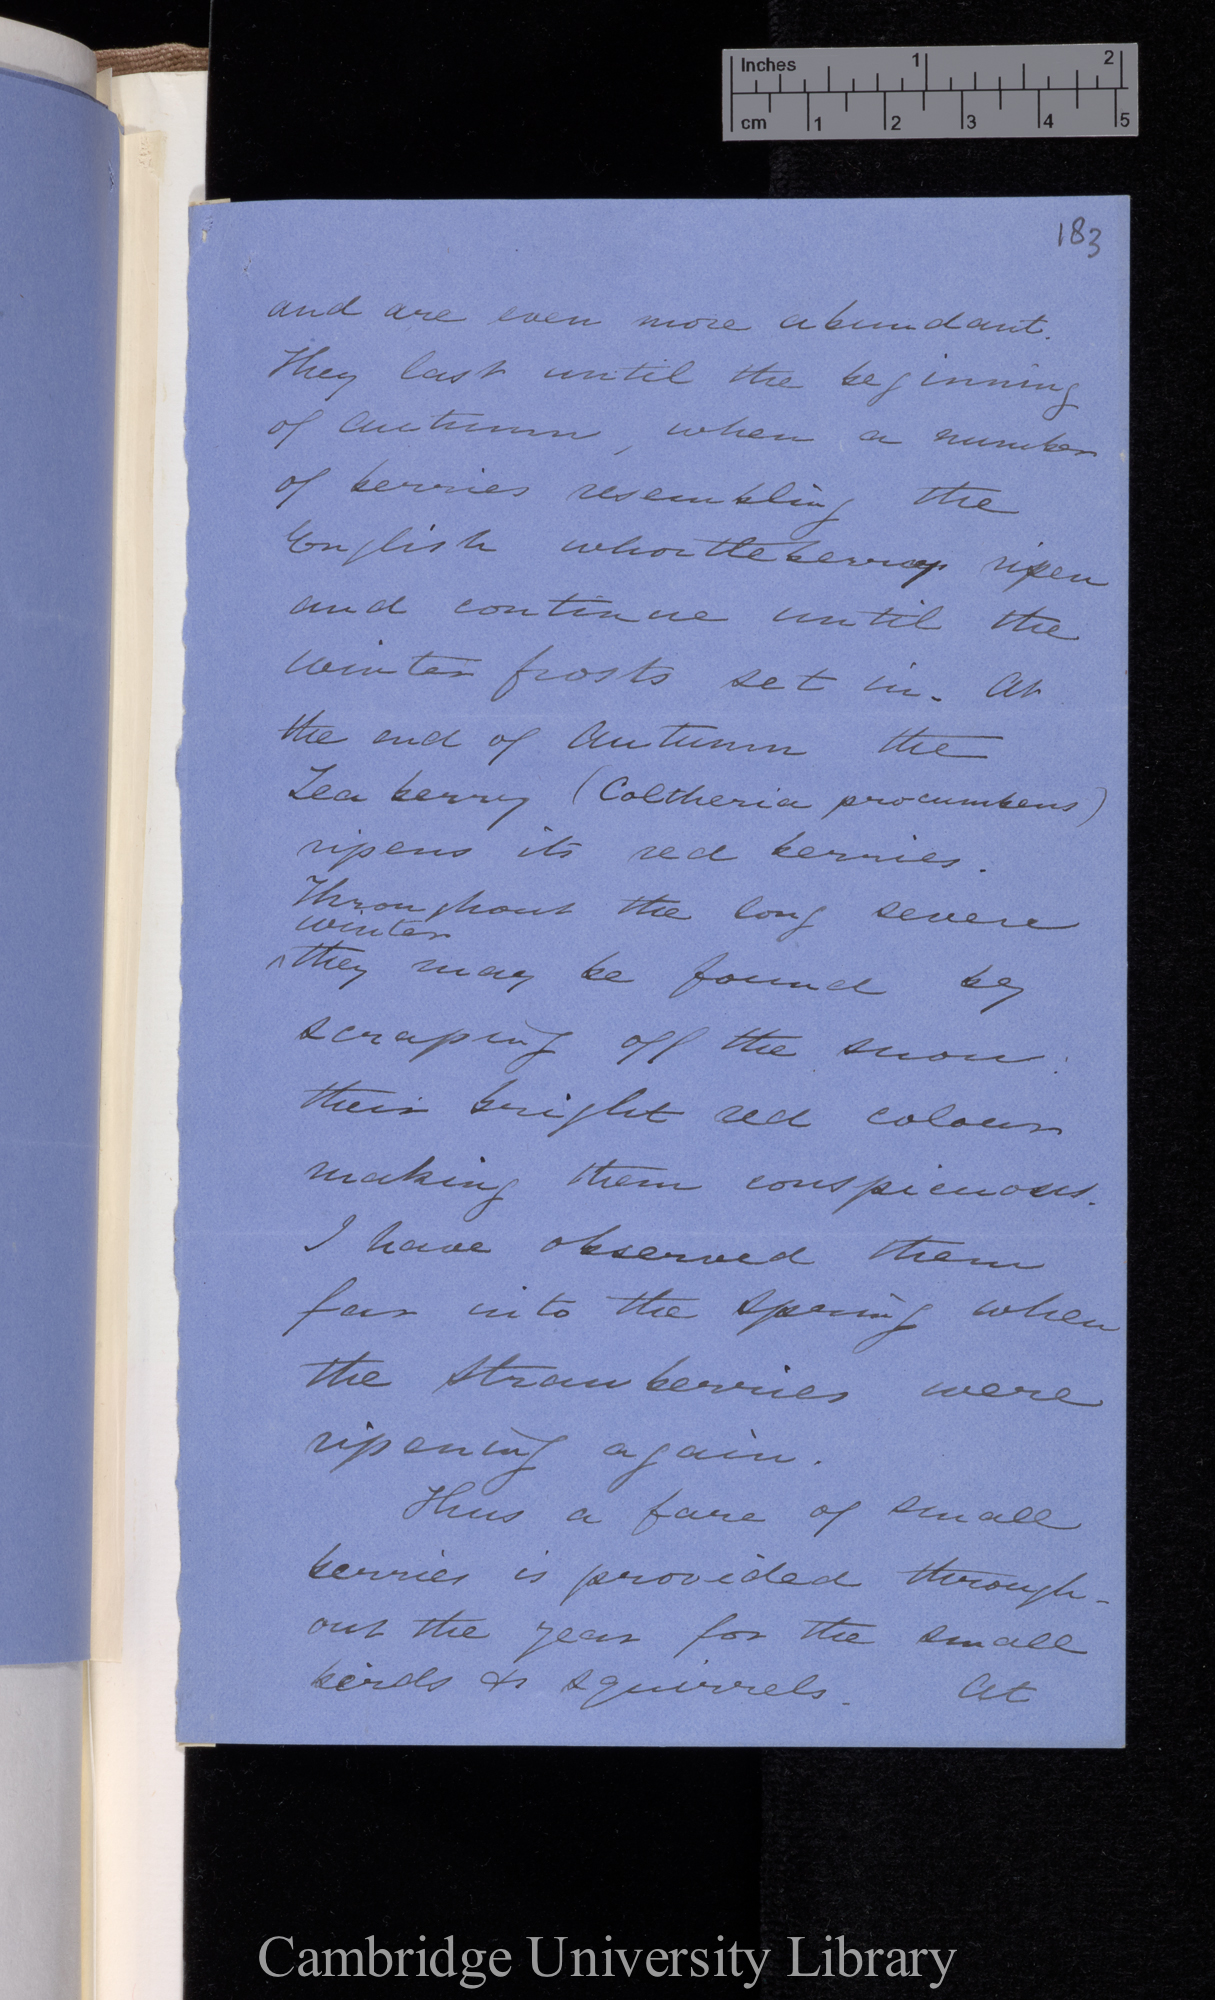 Inches 1 2
cm 1 2 3 4 5
183
and are even more abundant.
They last until the beginning
of Autumn, when a number
of berries resembling the
English whortleberry ripen
and continue until the
winter frosts set in. At
the end of Autumn the
Tea berry (Coltheria procumbens)
ripens its red berries.
Throughout the long severe
winter
^they may be found by
scraping off the snow:
their bright red colour
making them conspicuous.
I have observed them
far into the spring when
the strawberries were
ripening again.
Thus a fare of small
berries is provided through-
out the year for the small
birds & squirrels. At
Cambridge University Library